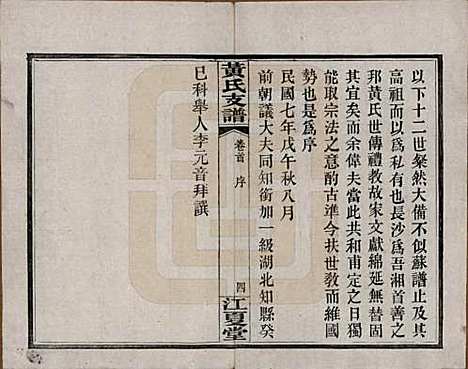 以下十二世粲然大備不似蘇譜止及其
高祖而以爲私有也長沙爲吾湘首善之
邦黃氏世傳禮教故家文獻綿延無替固
其宜矣而余偉夫當此共和甫定之時而
能取宗法之意酌古進今扶世敎而維國
勢也是爲序
民國七年戊午秋八月
前朝議大夫同知銜加一級湖北知縣癸
黃氏支譜
卷首 序
四
江夏堂
巳科舉人李元音拜譔